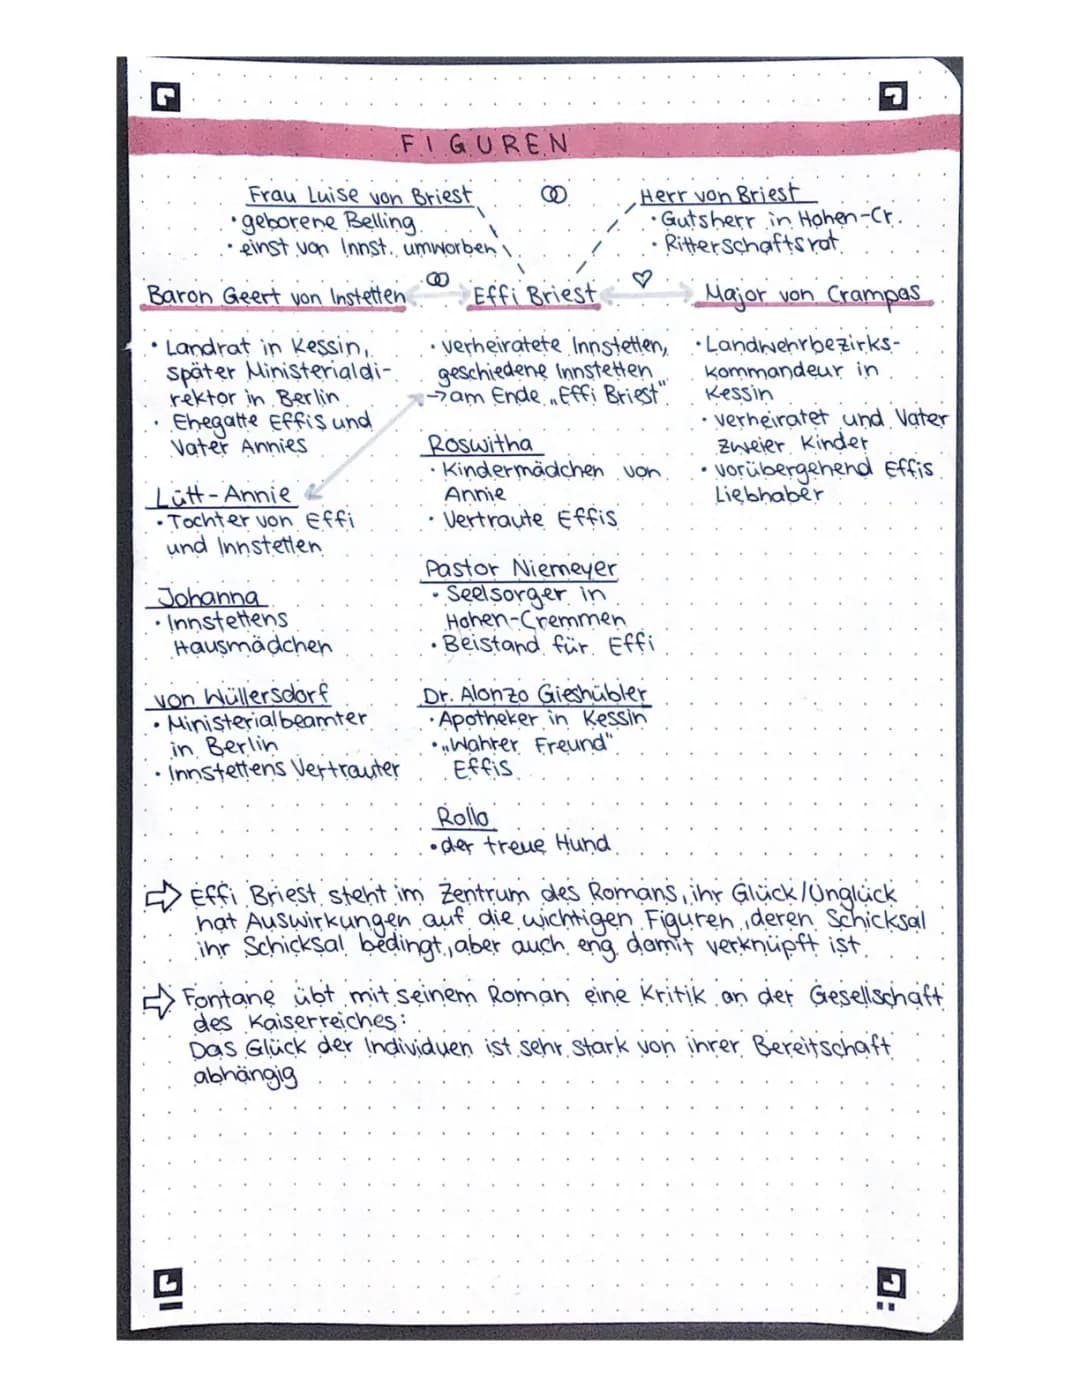 FIGUREN
Frau Luise von Briest
• geborene Belling
• einst von Innst. umworben
Herr von Briest
• Gutsherr in Hohen-Cr.
• Ritterschaftsrat
Baron Geert von Instetten
Effi Briest
Major von Crampas
• Landrat in Kessin,
später Ministerialdi-
rektor in Berlin
• Ehegatte Effis und
Vater Annies
Lütt-Annie
• Tochter von Effi
und Innstetten
Johanna
• Innstettens
Hausmädchen
von Wüllersdorf
• Ministerialbeamter
in Berlin
• Innstettens Vertrauter
• verheiratete Innstetten,
geschiedene Innstetten
→ am Ende „Effi Briest"
Roswitha
• Kindermädchen von
Annie
• Vertraute Effis
Pastor Niemeyer
• Seelsorger in
Hohen-Cremmen
• Beistand für Effi
Dr. Alonzo Gieshübler
• Apotheker in Kessin
• „Wahrer Freund"
Effis
Rollo
• der treue Hund
• Landwehrbezirks-
kommandeur in
Kessin
• verheiratet und Vater
zweier Kinder
• vorübergehend Effis
Liebhaber
⇨ Effi Briest steht im Zentrum des Romans, ihr Glück/Unglück
hat Auswirkungen auf die wichtigen Figuren, deren Schicksal
ihr Schicksal bedingt, aber auch eng damit verknüpft ist
⇨ Fontane übt mit seinem Roman eine Kritik an der Gesellschaft
des Kaiserreiches:
Das Glück der Individuen ist sehr stark von ihrer Bereitschaft
abhängig